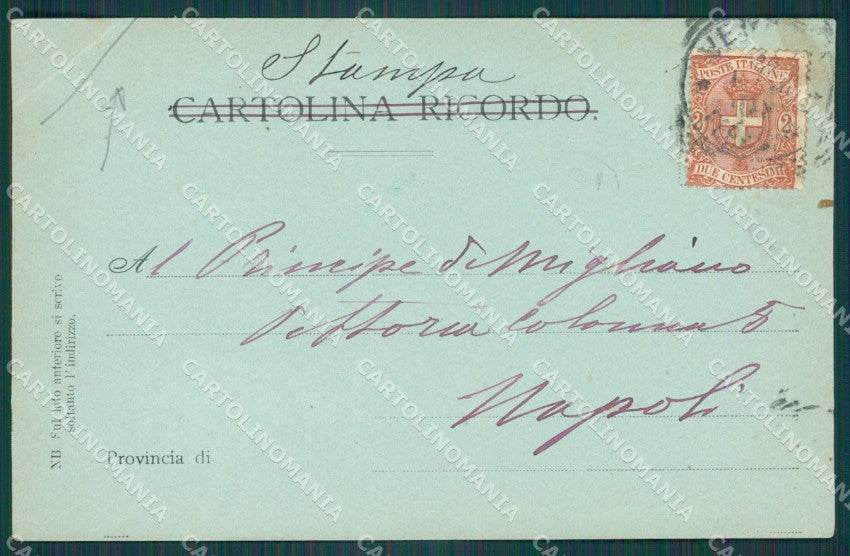 Stampa
CARTOLINA RICORDO.
POSTE ITALIANE
2 2
DUE CENTESIMI
Al Principe di Migliano
Vittoria Colonna 5
Napoli
Provincia di
NB Sul lato anteriore si scrive
soltanto l'indirizzo.
CARTOLINOMANIA